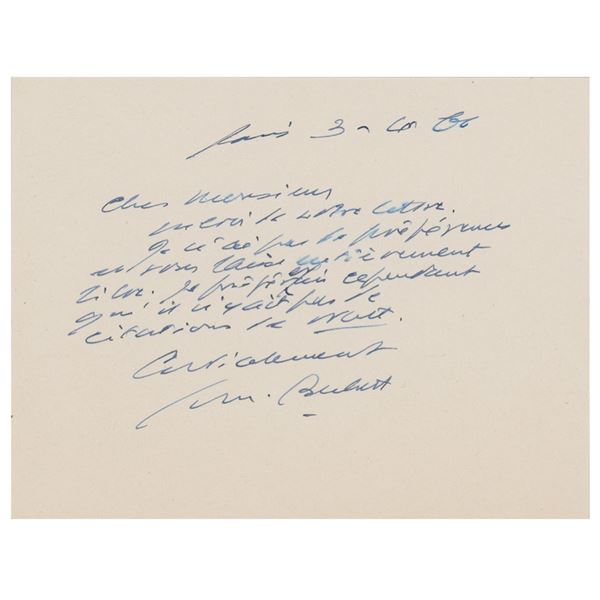 Paris 3-4-66
Cher Monsieur
merci de votre lettre.
Je n'ai pas de préférence
et vous laisse entièrement
libre. Je préférerais cependant
qu'il n'y ait pas de
citations de Watt.
Cordialement
Sam. Beckett